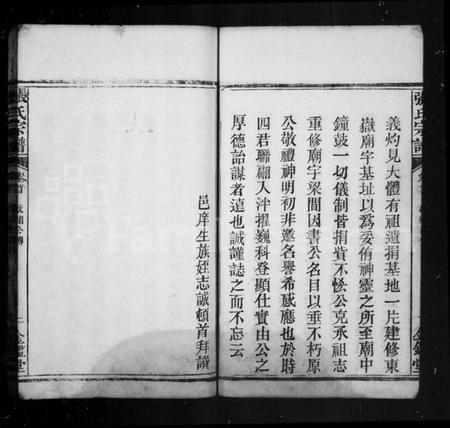 張氏宗譜
義灼見大體有祖遺捐基地一片建修東
嶽廟宇基址以為妥侑神靈之所至廟中
鐘鼓一切儀制皆捐貲不恡公克承祖志
重修廟宇梁間因書公名目以垂不朽原
公敬禮神明初非邀名譽希感應也於時
四君聯翩入泮擢巍科登顯仕實由公之
厚德詒謀者遠也誠謹誌之而不忘云
邑庠生族姪志誠頓首拜譔
張氏宗譜
卷首
公傳